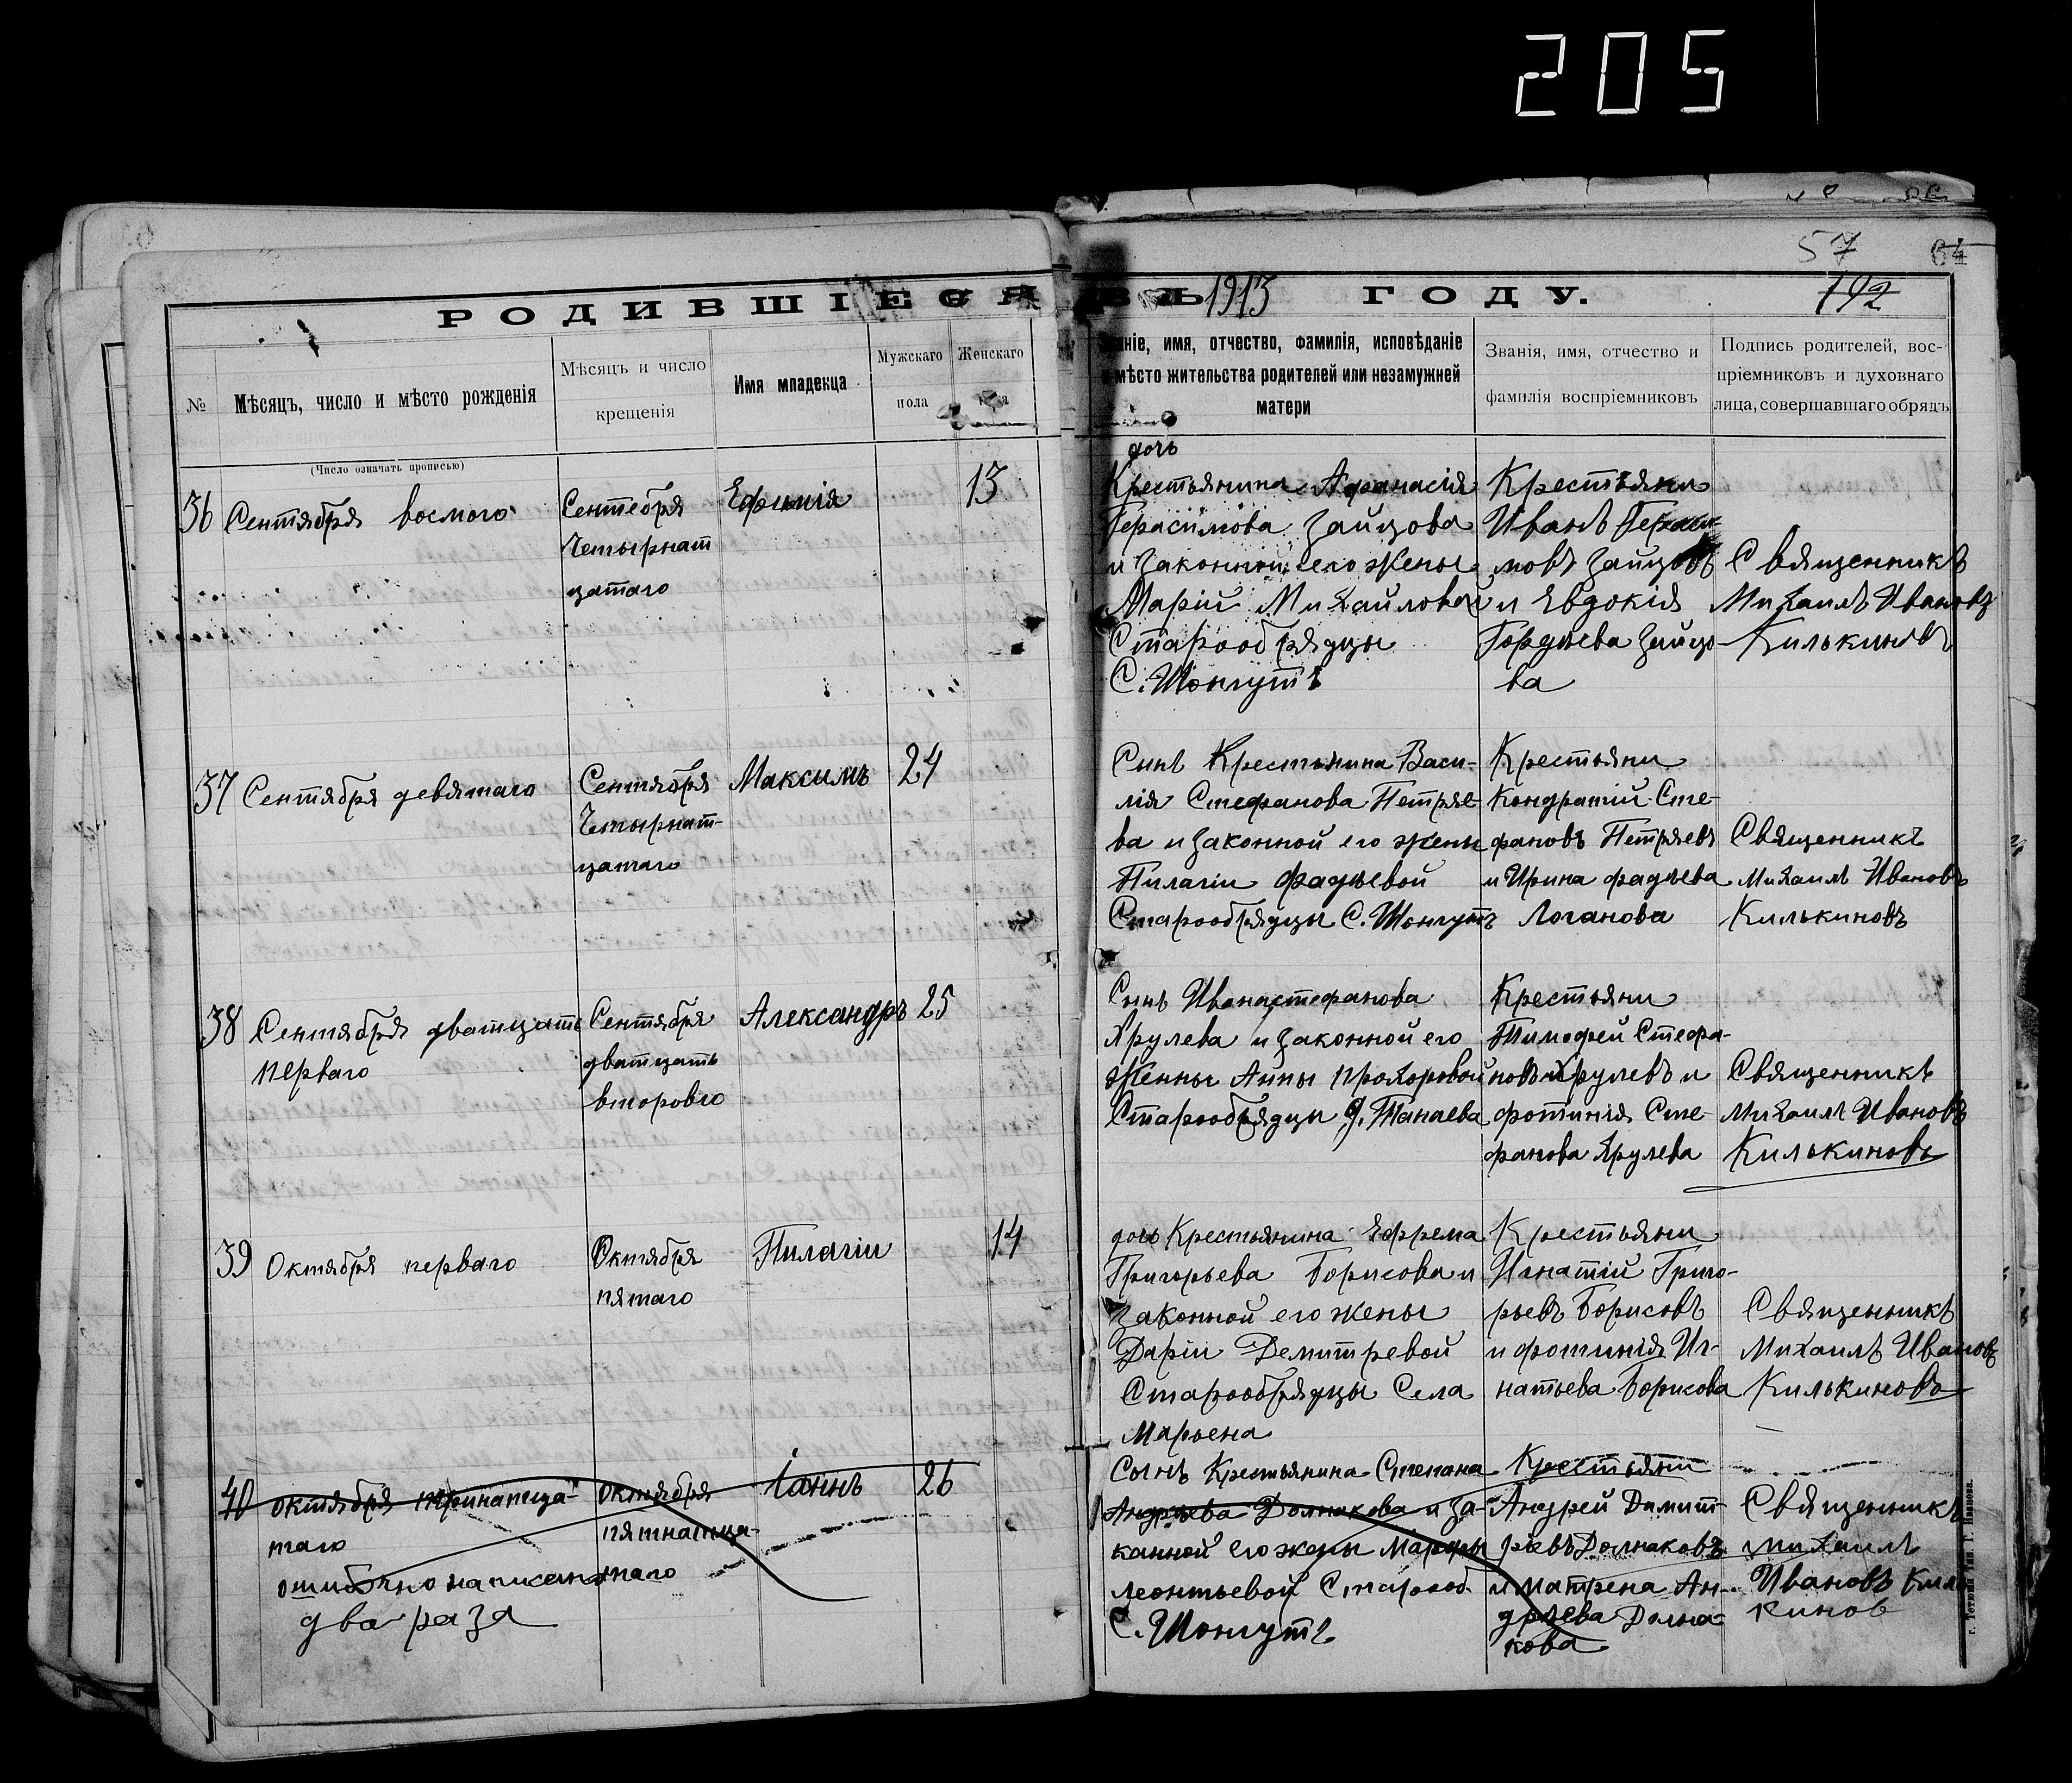 205
57
64
РОДИВШІЕСЯ ВЪ 1913 ГОДУ.
192
№
Мѣсяцъ, число и мѣсто рожденія
(Число означать прописью)
Мѣсяцъ и число
крещенія
Имя младекца
Мужскаго
пола
Женскаго
Званіе, имя, отчество, фамилія, исповѣданіе
и мѣсто жительства родителей или незамужней
матери
Званія, имя, отчество и
фамилія воспріемниковъ
Подпись родителей, вос-
пріемниковъ и духовнаго
лица, совершавшаго обрядъ
36
Сентября восмого
Сентебря
Четырнат
цатаго
Ефимія
13
дочь
Крестьянина Афанасія
Герасимова Зайцова
и законной его жены
Марій Михайловой
Старообрядцы
С. Шонгутъ
Крестьяни
Иванъ Гераси-
мовъ Зайцовъ
и Евдокія
Гордѣева Зайцо-
ва
Священникъ
Михаилъ Ивановъ
Килькиновъ
37
Сентября девятаго
Сентября
Четырнат-
цатаго
Максимъ
24
Сынъ Крестьянина Васи-
лія Стефанова Петряе-
ва и законной его жены
Пилагіи Фадѣевой
Старообрядцы С. Шонгутъ
Крестьяни
Кондратій Сте-
фановъ Петряевъ
и Ирина Фадѣева
Логанова
Священникъ
Михаилъ Ивановъ
Килькиновъ
38
Сентября дватцать
перваго
Сентября
дватцать
второво
Александръ
25
Сынъ Иванастефанова
Хрулева и законной его
Женны Анны Прохоровой
Старообрядцы д. Танаева
Крестьяни
Тимофей Стефа-
новъ Хрулевъ и
Фотинія Сте-
фанова Хрулева
Священникъ
Михаилъ Ивановъ
Килькиновъ
39
Октября перваго
Октября
пятаго
Пилагіи
14
дочь Крестьянина Ефрема
Григорьева Борисова и
Законной его жены
Даріи Демитревой
Старообрядцы Села
Марьена
Крестьяни
Игнатій Григо-
рьевъ Борисовъ
и фотинія Иг-
натьева Борисова
Священникъ
Михаилъ Ивановъ
Килькиновъ
40
октября тринатца-
таго
ошибочно написано
два раза
октября
пятнатца-
таго
Іаннъ
26
Сынъ Крестьянина Степана
Андрѣева Долнакова и за-
канной его жены Марфы
Леонтьевой Старооб.
С. Шонгутъ
Крестьяни
Андрей Димит-
рѣевъ Долнаковъ
и Матрена Ан-
дрѣева Долна-
кова
Священникъ
михаилъ
Ивановъ Киль
кинов
г. Готовн. Тип. Т. Иванова.